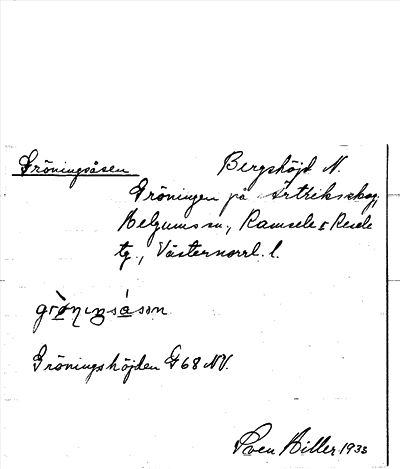 Gröningsåsen
Bergshöjd N.
Gröningen på Ärtriksskog,
Helgums sn, Ramsele o Resele
tg., Västernorrl. l.
grò̱niŋsá̱sən
Gröningshöjden G68 NV.
Sven Hiller 1933